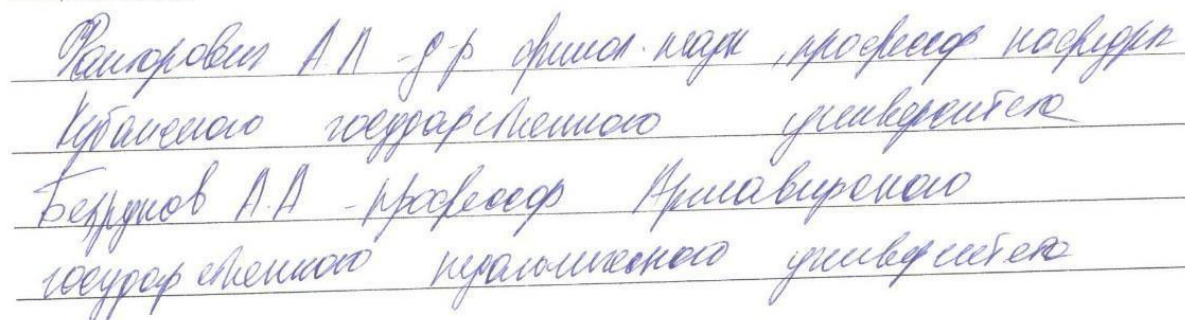 Факторович А.Л - д-р филол. наук, профессор кафедры
Кубанского государственного университета
Безруков А.А - профессор Армавирского
государственного педагогического университета